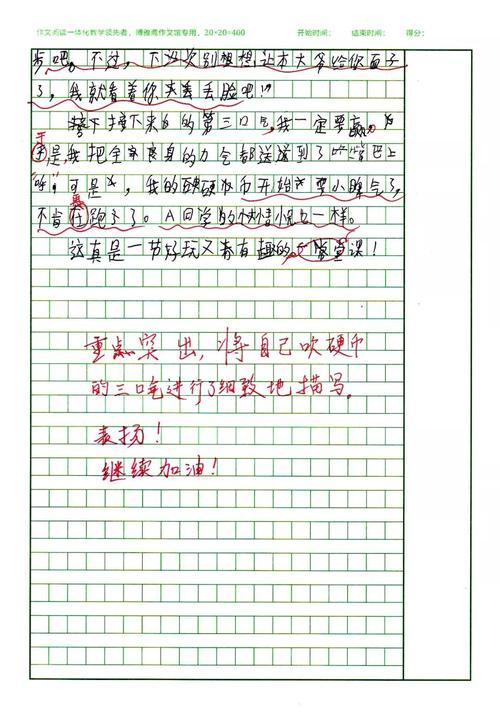 作文阅读一体化教学领先者，博雅鹰作文馆专用，20×20=400 开始时间： 结束时间： 得分：
步吧。不过，下次别想想让本大爷给你面子
了，我就看着你去丢丢脸吧！"
接下接下来的第三口气，我一定要赢。
于是，我把全身的力全都送到了嘴巴上
可是，我的硬币开始耍小脾气了，
不肯再跑了。A同学的情况也一样。
这真是一节好玩又有趣的一堂课！
重点突出，将自己吹硬币
的三口气进行了细致地描写。
表扬！
继续加油！